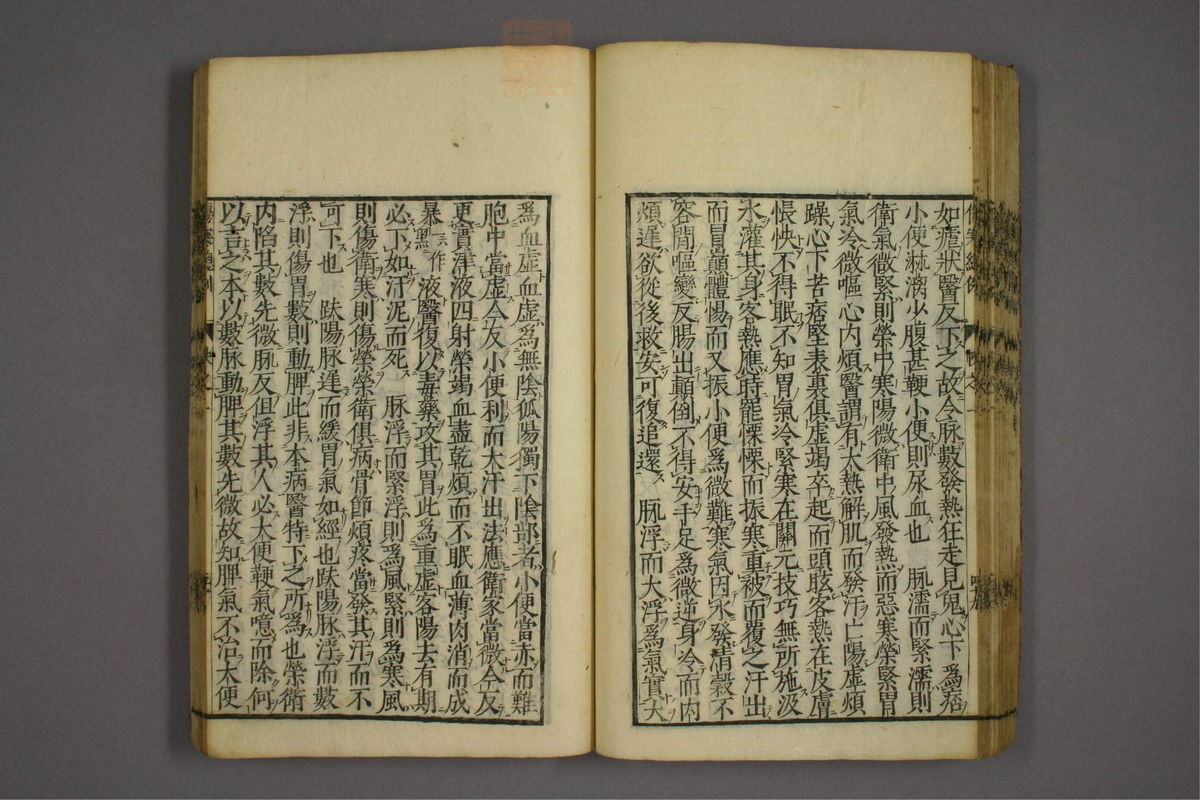 如瘧狀醫反下之故令脉數發熱狂走見鬼心下爲痞
小便淋瀝少腹甚鞕小便則尿血也　脉濡而緊濡則
衛氣微緊則榮中寒陽微衛中風發熱而惡寒榮緊胃
氣冷微嘔心内煩醫謂有大熱解肌而發汗亡陽虛煩
躁心下苦痞堅表裏俱虛竭卒起而頭眩客熱在皮膚
悵怏不得眠不知胃氣冷緊寒在關元技巧無所施汲
水灌其身客熱應時罷慄慄而振寒重被而覆之汗出
而冒巔體惕而又振小便爲微難寒氣因水發清穀不
容間嘔變反腸出顛倒不得安手足爲微逆身冷而内
煩遲欲從後救安可復追還　脉浮而大浮爲氣實大
爲血虛血虛爲無陰孤陽獨下陰部者小便當赤而難
胞中當虛今反小便利而大汗出法應衛家當微今反
更實津液四射榮竭血盡乾煩而不眠血薄肉消而成
暴一云黑作液醫復以毒藥攻其胃此爲重虛客陽去有期
必下如汗泥而死　脉浮而緊浮則爲風緊則爲寒風
則傷衛寒則傷榮榮衛俱病骨節煩疼當發其汗而不
可下也　趺陽脉遲而緩胃氣如經也趺陽脉浮而數
浮則傷胃數則動脾此非本病醫特下之所爲也榮衛
内陷其數先微脉反但浮其人必大便鞕氣噫而除何
以言之本以數脉動脾其數先微故知脾氣不治大便